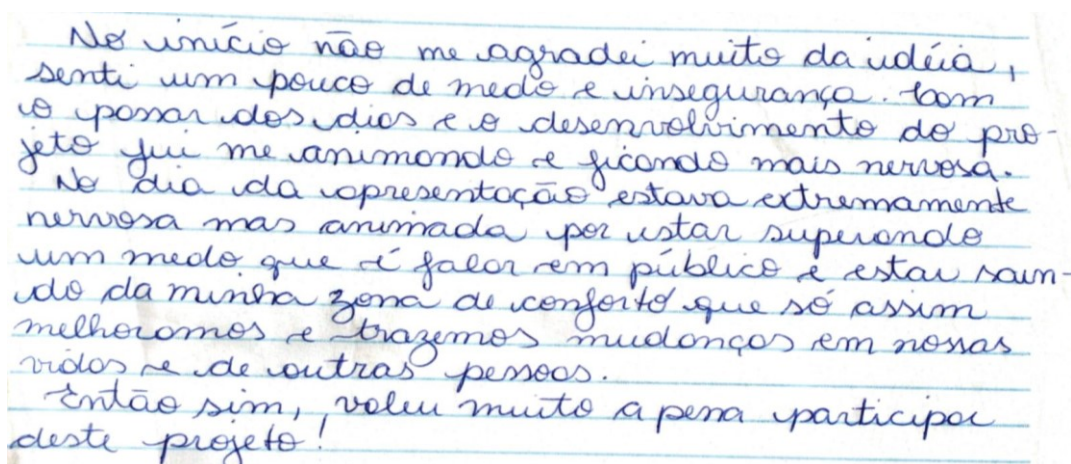 No início não me agradei muito da idéia,
senti um pouco de medo e insegurança. Com
o passar dos dias e o desenvolvimento do pro-
jeto fui me animando e ficando mais nervosa.
No dia da apresentação estava extremamente
nervosa mas animada por estar superando
um medo que é falar em público e estar sain-
do da minha zona de conforto que só assim
melhoramos e trazemos mudanças em nossas
vidas e de outras pessoas.
Então sim, valeu muito a pena participar
deste projeto!